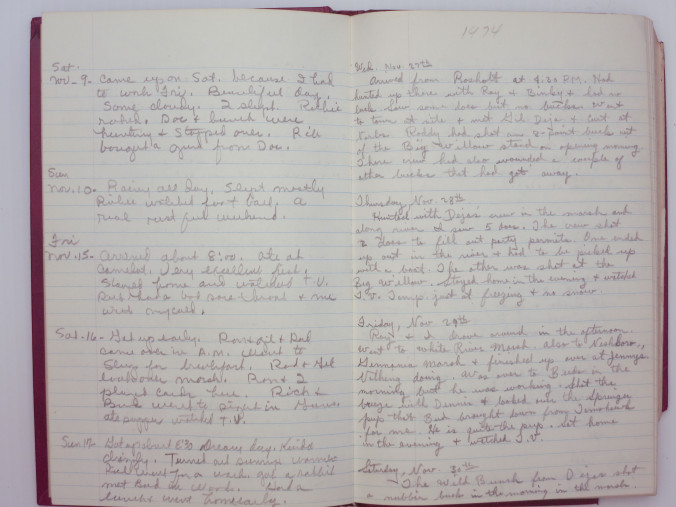 Sat.
Nov-9- Came up on Sat. because I had
to work Fri. Beautiful day,
Some cloudy. 2 slept. Richie
raked. Doc & bunch were
hunting & stopped over. Rich
bought a gun from Doc.
Sun
Nov.10- Rainy all day. Slept mostly
Richie watched foot ball, a
real restful weekend.
Fri
Nov.15- Arrived about 8:00. Ate at
Camelot. Very excellent
Stayed home and watched T.V.
Rich had a bad sore throat & me
Sat.-16- Got up early. Ron & Gil & Dad
came over in A.m. Went to
for breakfast. Rod & Gil
marsh. Ron & 2
played cards here. Rich &
Bink went to
ate supper watched T.V.
Sun 17- Got up about 8:30 Dreary day. Kinda
drizzly. Turned out sunny & warm
Rich went for a walk, got a rabbit
met Bink in woods. Had a
lunch & went home early.
1974
Wed. Nov. 27th
Arrived from Rosholt at 4:30 P.M. Had
hunted up there with Ray & Binky & had no
luck. Saw some does but no bucks. Went
to town at nite & met Gil Dejas & Curt at
Norbs. Roddy had shot an 8-point buck out
of the Big Willow stand on opening morning.
Their crew had also wounded a couple of
other bucks that had got away.
Thursday, Nov. 28th
Hunted with Dejas' crew in the marsh and
along river & saw 5 does. The crew shot
2 does to fill out party permits. One ended
up out in the river & had to be picked up
with a boat. The other was shot at the
Big Willow. Stayed home in the evening & watched
T.V. Temp. just at freezing & no snow
Friday, Nov. 29th
& I drove around in the afternoon.
Went to White River Marsh, also to Neshkoro,
Germania Marsh & finished up over at Jennys.
Nothing doing. Was over to Binks in the
morning but he was working. Shot the
breeze with Dennis & looked over the Springer
pup that Bud brought down from
for me. He is quite the pup. Sat home
in the evening & watched T.V.
Saturday, Nov. 30th
The Wild Bunch from Dejas shot
a nubbin buck in the morning in the marsh.